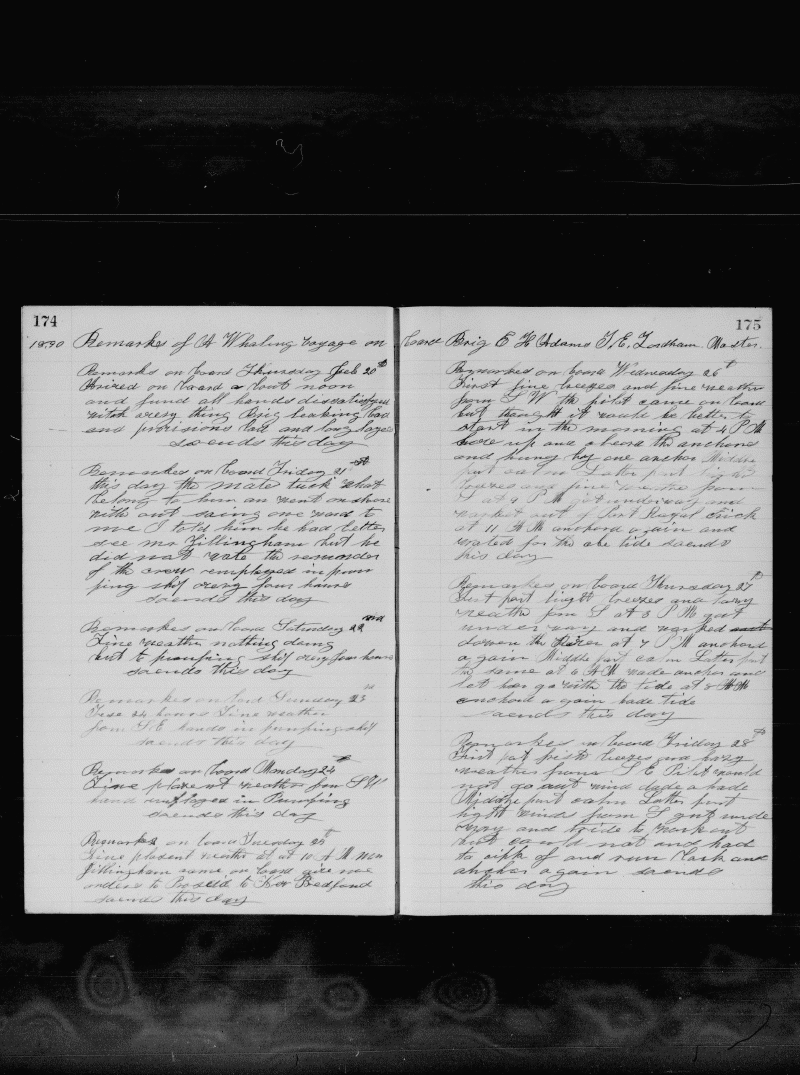 174
1890 Remarks of A Whaling voyage on
Remarks on board Thursday Feb 20th
Arived on board a bout noon
and fund all hands
with every thing Brig leaking bad
and provisions bad and long
so ends this day
Remarks on board Friday 21st
this day the mate tuck what
belong to him an went on shore
with out saing one word to
me I told him he had better
see mr Jillingham but he
did not the remander
of the crew employed in pum
ping ship every four hours
so ends this day
Remarks on board Saturday 22nd
Fine weather nothing doing
but to pumping ship every four hours
so ends this day
Remarks on bord Sunday 23
24 hours Fine weather
from S E hands in pumping ship
so ends this day
Remarks on board Monday 24th
Fine plasent weather from S W
hand employed in Pumping
so ends this day
Remarks on board Tuesday 25th
Fine plasent weather at 10 A M mr
Jillingham came on board give me
orders to Proseed to New Bedford
so ends this day
175
board Brig E H Adams T. E. Master.
Remarkes on board Wednesday 26th
First fine breezes and fine weather
from S W the pilot came on board
but thought it would be better to
start in the morning at 4 P M
hove up one a board the anchors
and hung by one anchor Middle
part calm Latter part light
breezes and fine weather from
at 9 P M got underway and
out of Port Royal Crick
at 11 A M anchord again and
wated for the tide so ends
this day
Remarkes on board Thursday 27th
First part light breezes and
weath from S at 3 P M got
under way and worked
down the River at 7 P M anchord
again Middle part calm Latter part
the same at 6 A M made anchor and
let her go with the tide at 8 A M
anchord a gain bade tide
so ends this day
Remarkes on board Friday 28th
First part fresh breezes and
weather from S E Pilot would
not go out wind dade a hade
Middle part calm Latter part
light winds from got under
way and tride to work out
but could not and had
to off and run back and
anchor again so ends
this day